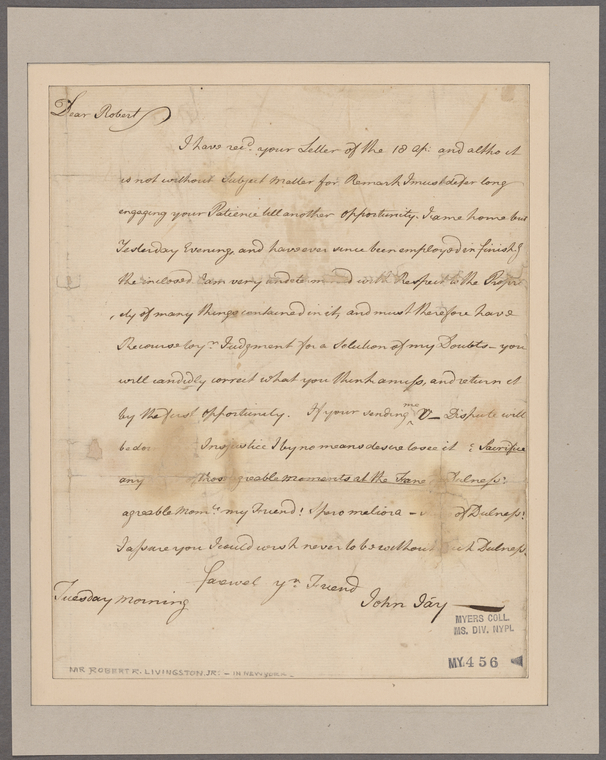 Dear Robert
I have recd. your Letter of the 18 Ap: and altho it
is not without Subject Matter for Remark I must defer long
engaging your Patience till another opportunity. I came home but
Yesterday Evening, and have ever since been employed in finishg
the inclosed. I am very undetermined with Respect to the Propri
ety of many things contained in it, and must therefore have
Recourse to yr. Judgment for a Solution of my Doubts — you
will candidly correct what you think amiss, and return it
by the first opportunity. If your sending me V— Dispute will
be do Injustice I by no means desire to see it : Sacrifice
any those agreable moments at the Fane Dulness:
agreable Momts. my Friend! Spero meliora — of Dulness:
I assure you I could wish never to be without such Dulness.
farewel yr. Friend
Tuesday morning
John Jay
MYERS COLL.
MS. DIV. NYPL
MY. 456
MR ROBERT R. LIVINGSTON, JR: — IN NEW-YORK.